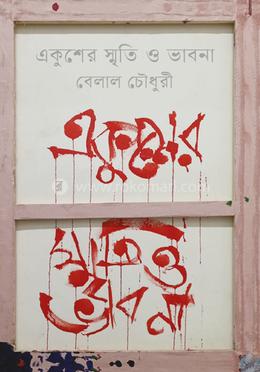 একুশের স্মৃতি ও ভাবনা
বেলাল চৌধুরী
একুশের
rokomari.com
স্মৃতি ও
ভাবনা